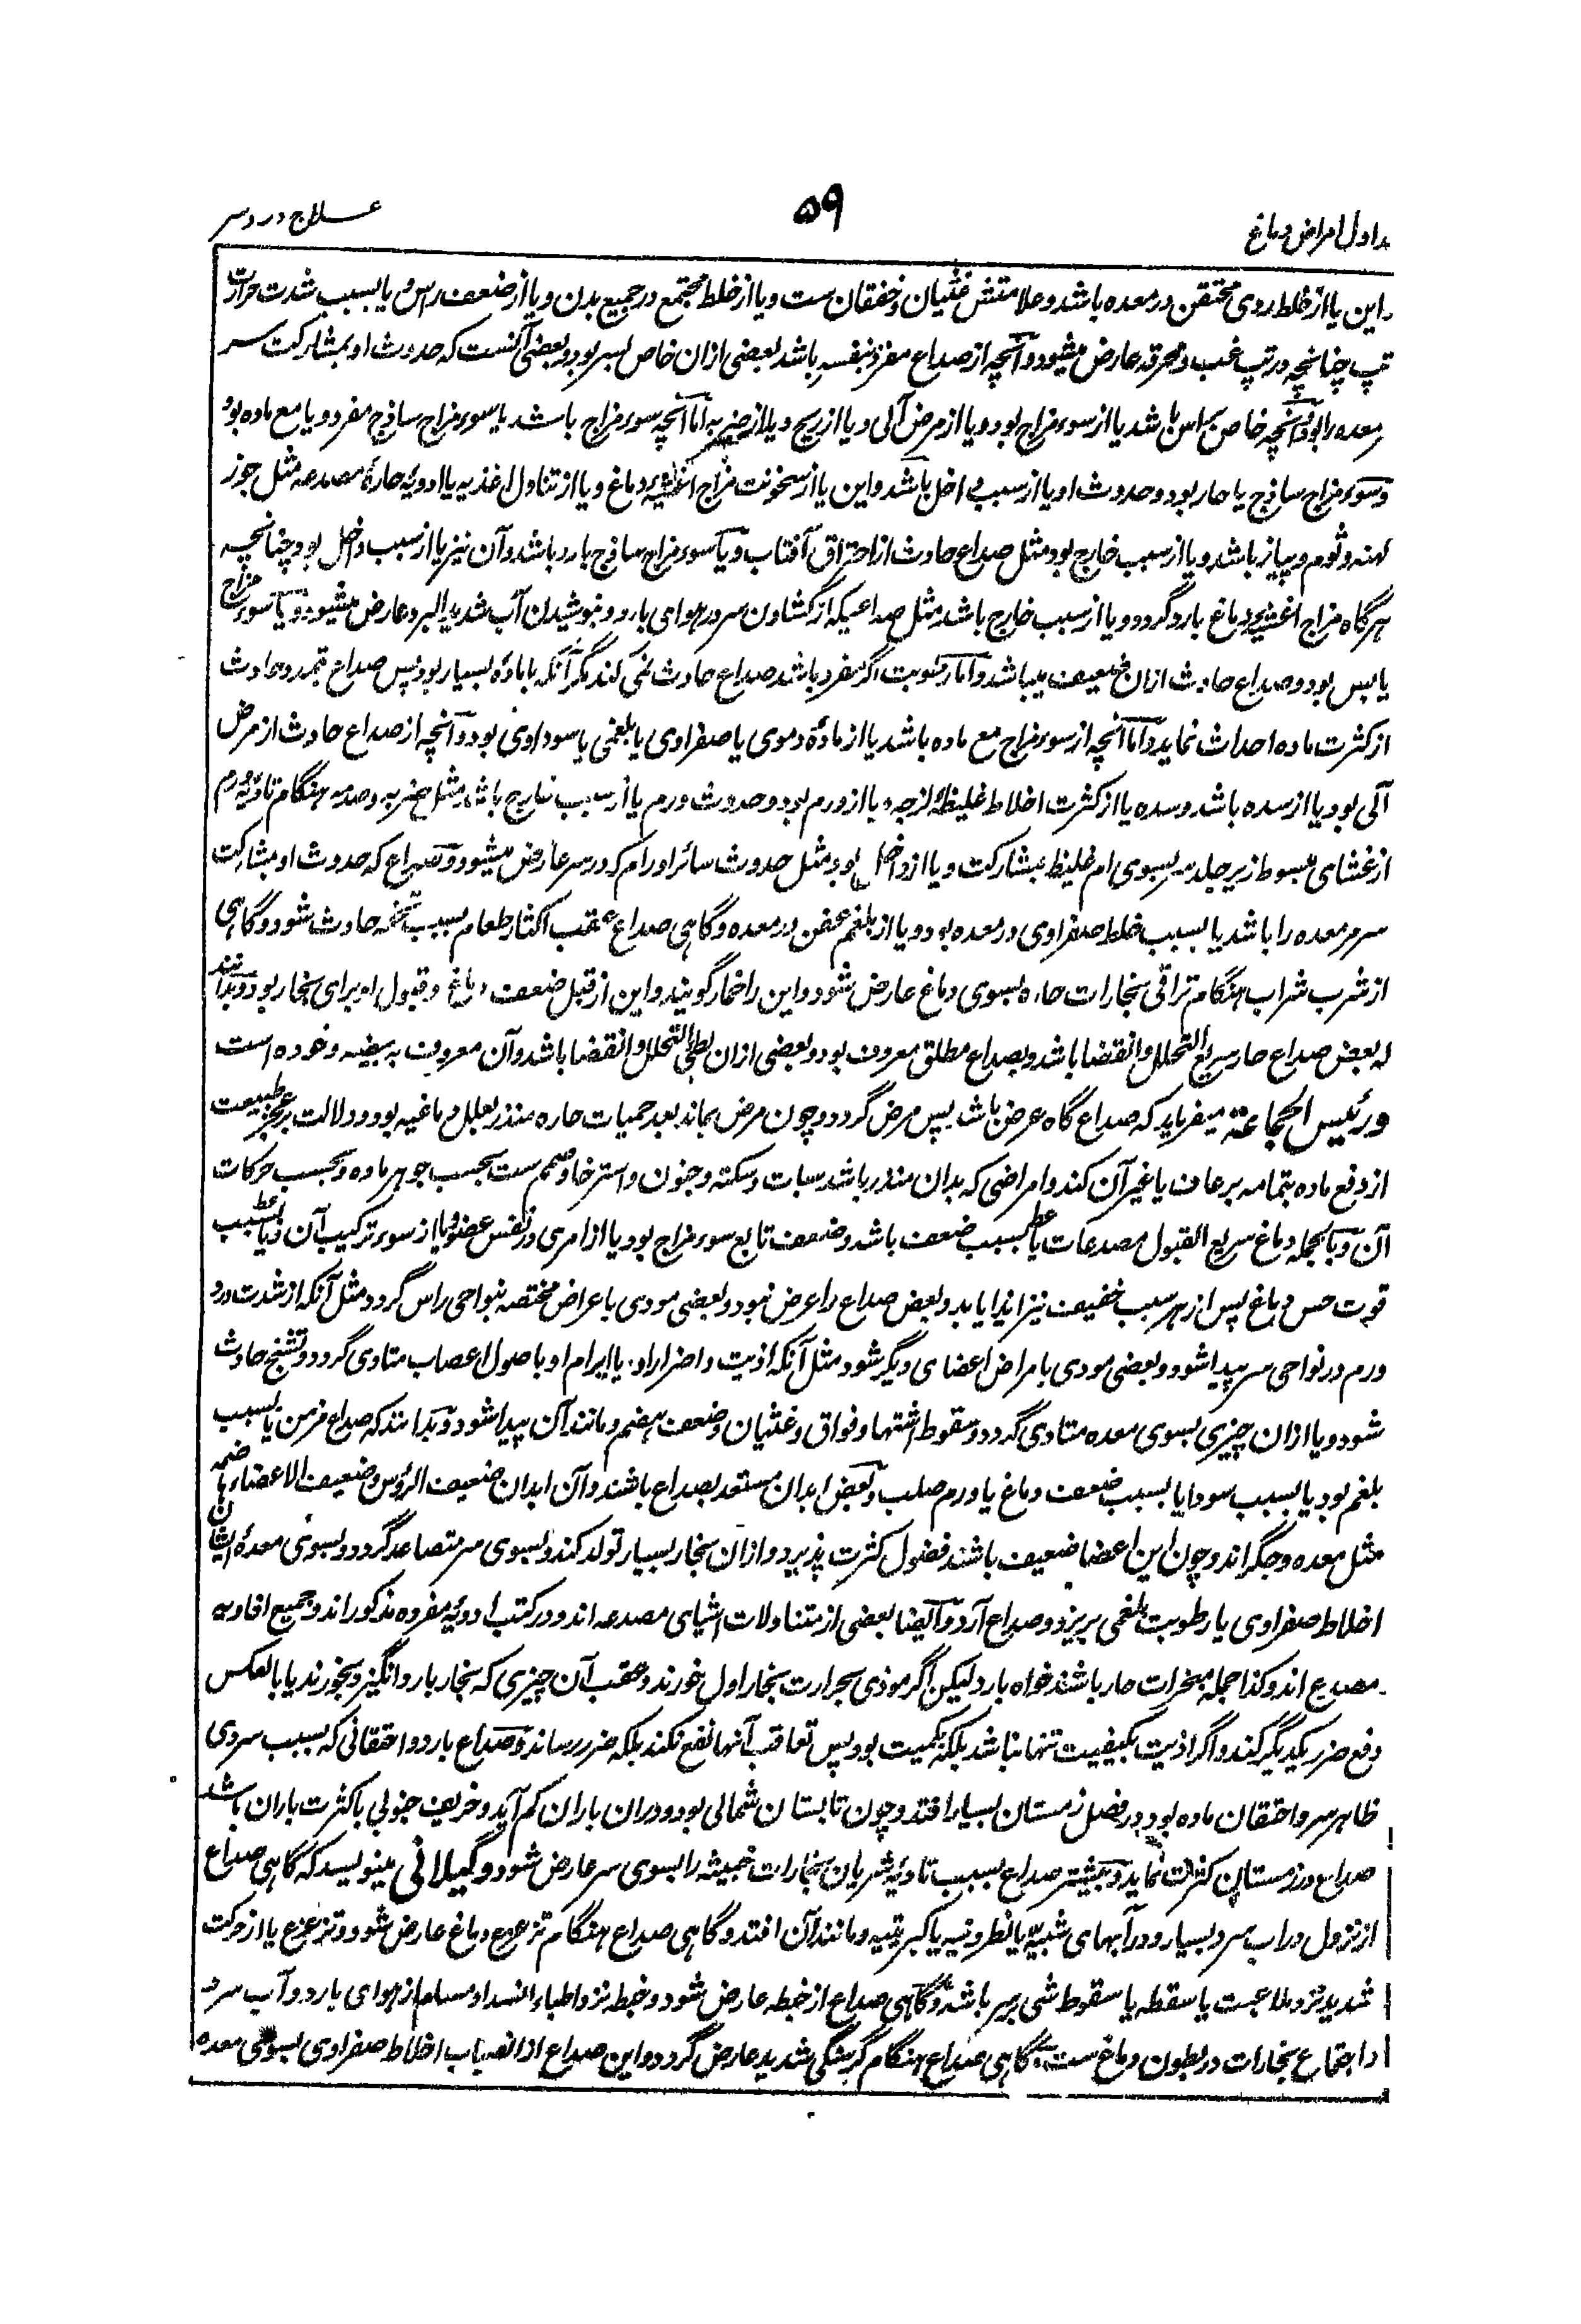 علاج دردسر ۵۹ داول امراض دماغ
واین یا از خلط ردی محتقن در معده باشد و علامتش غثیان و خفقان ست و یا از خلط مجتمع در جمیع بدن و یا از ضعف راس و یا بسبب شدت حرارت
تپ چنانچه در تپ غب و محرقه عارض میشود و آنچه از صداع مفرد بنفسه باشد بعضی ازان خاص بسر بود و بعضی آنست که حدوث او بمشارکت سر
معده را بود و آنچه خاص براس باشد یا از سوء مزاج بود و یا از مرض آلی و یا از ریح و یا از ضربه اما آنچه سوء مزاج باشد یا سوء مزاج ساذج مفرد و یا مع ماده بود
و سوء مزاج ساذج یا حار بود و حدوث او یا از سبب داخل باشد و این یا از سخونت مزاج اغشیه دماغ و یا از تناول اغذیه یا ادویهٔ حارهٔ مصدعه مثل جوز
کهنه و ثوم و پیاز باشد و یا از سبب خارج بود مثل صداع حادث از احتراق آفتاب و یا سوء مزاج ساذج بارد باشد و آن نیز یا از سبب داخل بود چنانچه
هرگاه مزاج اغشیهٔ دماغ بارد گردد و یا از سبب خارج باشد مثل صداعیکه از گشادن سر در هوای بارد و نوشیدن آب شدید البرد عارض میشود و یا سوء مزاج
یابس بود و صداع حادث ازان ضعیف میباشد و اما رطوبت اگر مفرد باشد صداع حادث نمی کند مگر آنکه با مادهٔ بسیار بود پس صداع تمددی حادث
از کثرت ماده احداث نماید و اما آنچه از سوء مزاج مع ماده باشد یا از مادهٔ دموی یا صفراوی یا بلغمی یا سوداوی بود و آنچه از صداع حادث از مرض
آلی بود یا از سده باشد و سده یا از کثرت اخلاط غلیظهٔ لزجه و یا از ورم بود و حدوث ورم یا از سبب خارج باشد مثل ضربه و صدمه هنگام تادیهٔ ورم
از غشای مبسوط زیر جلد سر بسوی ام غلیظ بمشارکت و یا از داخل بود مثل حدوث سائر اورام که در سر عارض میشود و صداع که حدوث او بمشارکت
سر مر معده را باشد یا بسبب خلط صفراوی در معده بود و یا از بلغم عفن در معده و گاهی صداع عقب اکثار طعام بسبب تخمه حادث شود و گاهی
از شرب شراب هنگام تراقی بخارات حاره بسوی دماغ عارض شود و این را خمار گویند و این از قبل ضعف دماغ و قبول او برای بخار بود و بدانند
که بعض صداع حار سریع التحلل و انقضا باشد و بصداع مطلق معروف بود و بعضی ازان بطی التحلل و انقضا باشد و آن معروف به بیضه و خوده است
و رئیس الجماعة میفرماید که صداع گاه عرض باشد پس مرض گردد و چون مرض بماند بعد حمیات حاره منذر بعلل دماغیه بود و دلالت بر عجز طبیعت
از دفع ماده بتمامه برعاف یا غیر آن کند و امراضی که بدان منذر باشد سبات و سکته و جنون و استرخا و صمم ست بحسب جوهر ماده و بحسب حرکات
آن و بالجمله دماغ سریع القبول مصدعات یا بسبب ضعف باشد و ضعف تابع سوء مزاج بود یا از امری در نفس عضو و یا از سوء ترکیب آن و یا بسبب
قوت حس دماغ پس از هر سبب خفیف نیز ایذا یابد و بعض صداع را عرض نبود و بعضی مودی باعراض مختصه بنواحی راس گردد مثل آنکه از شدت درد
ورم در نواحی سر پیدا شود و بعضی مودی بامراض اعضای دیگر شود مثل آنکه اذیت و اضرار او یا ایرام او باصول اعصاب متادی گردد و تشنج حادث
شود و یا ازان چیزی بسوی معده متادی گردد و سقوط اشتها و فواق و غثیان و ضعف هضم و مانند آن پیدا شود و بدانند که صداع مزمن یا بسبب
بلغم بود یا بسبب سودا یا بسبب ضعف دماغ یا ورم صلب و بعض ابدان مستعد بصداع باشند و آن ابدان ضعیف الرؤس و ضعیف الاعضاء هاضمه
مثل معده و جگر اند و چون این اعضا ضعیف باشند فضول کثرت پذیرد و ازان بخار بسیار تولد کند و بسوی سر متصاعد گردد و بسوی معدهٔ ایشان
اخلاط صفراوی یا رطوبت بلغمی بریزد و صداع آرد و ایضا بعضی از متناولات اشیای مصدعه اند و در کتب ادویهٔ مفرده مذکور اند و جمیع افاویه
مصدع اند و کذا جمله مبخرات حار باشند خواه بارد لیکن اگر موذی بحرارت بخار اول خورند و عقب آن چیزی که بخار بارد انگیزد بخورند یا بالعکس
دفع ضرر یکدیگر کند و اگر اذیت بکیفیت تنها نباشد بلکه بکمیت بود پس تعاقب آنها نفع نکند بلکه ضرر رساند و صداع بارد و احتقانی که بسبب سردی
ظاهر سر و احتقان ماده بود در فصل زمستان بسیار افتد و چون تابستان شمالی بود و دران باران کم آید و خریف جنوبی با کثرت باران باشد
صداع در زمستان کثرت نماید و بیشتر صداع بسبب تادیهٔ شریان بخارات خبیثه را بسوی سر عارض شود و گیلانی مینویسد که گاهی صداع
از نزول در آب سرد بسیار و در آبهای شبیه یا نطرونیه یا کبریتیه و مانند آن افتد و گاهی صداع هنگام تزعزع دماغ عارض شود و تزعزع یا از حرکت
شدید نزد ملاعبت یا سقطه یا سقوط شی بر سر باشد و گاهی صداع از خبطه عارض شود و خبطه نزد اطباء انسداد مسام از هوای بارد و آب سرد
و اجتماع بخارات در بطون دماغ ست و گاهی صداع هنگام گرسنگی شدید عارض گردد و این صداع از انصباب اخلاط صفراوی بسوی معده